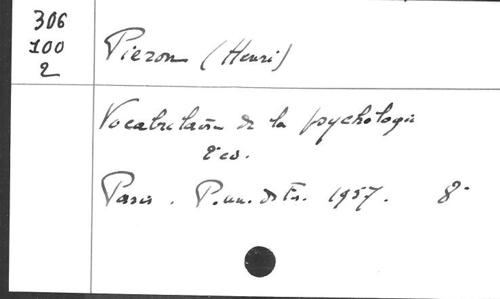 306
100
2
Pieron (Henri)
Vocabulaire de la psychologie
2 ed.
Paris. P. un. de Fr. 1957. 8°